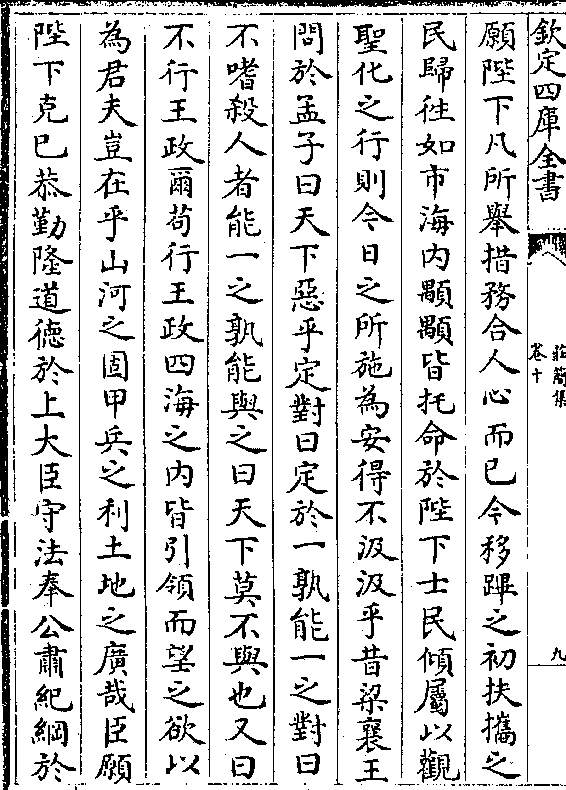 欽定四庫全書
莊簡集
卷十
九
願陛下凡所舉措務合人心而已今移蹕之初扶攜之
民歸徃如市海内顒顒皆托命於陛下士民傾屬以觀
聖化之行則今日之所施為安得不汲汲乎昔梁襄王
問於孟子曰天下惡乎定對曰定於一孰能一之對曰
不嗜殺人者能一之孰能與之曰天下莫不與也又曰
不行王政爾苟行王政四海之内皆引領而望之欲以
為君夫豈在乎山河之固甲兵之利土地之廣哉臣願
陛下克已恭勤隆道徳於上大臣守法奉公肅紀綱於